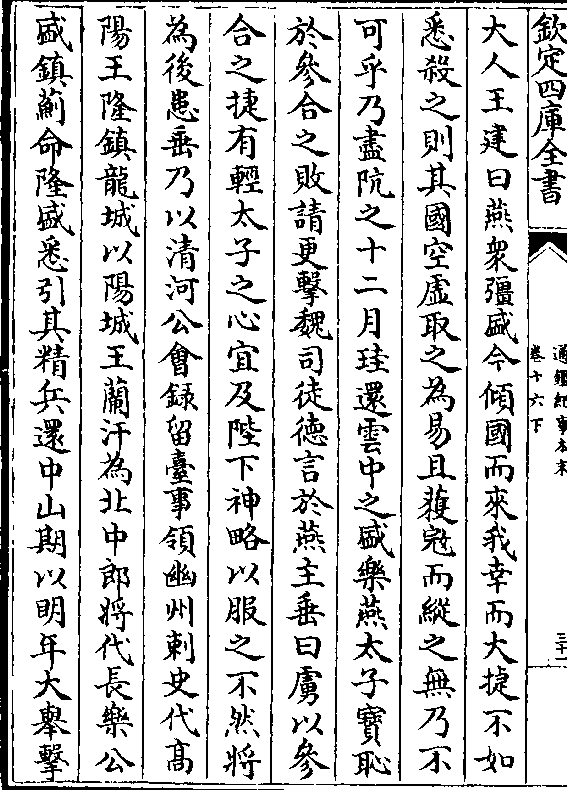 欽定四庫全書
通鑑紀事本末
卷十六下
三十一
大人王建曰燕衆彊盛今傾國而來我幸而大捷不如
悉殺之則其國空虚取之為易且獲寇而縱之無乃不
可乎乃盡阬之十二月珪還雲中之盛樂燕太子寶恥
於參合之敗請更擊魏司徒徳言於燕主垂曰虜以參
合之捷有輕太子之心宜及陛下神略以服之不然將
為後患垂乃以清河公會録留臺事領幽州刺史代髙
陽王隆鎮龍城以陽城王蘭汗為北中郎將代長樂公
盛鎮薊命隆盛悉引其精兵還中山期以明年大舉擊